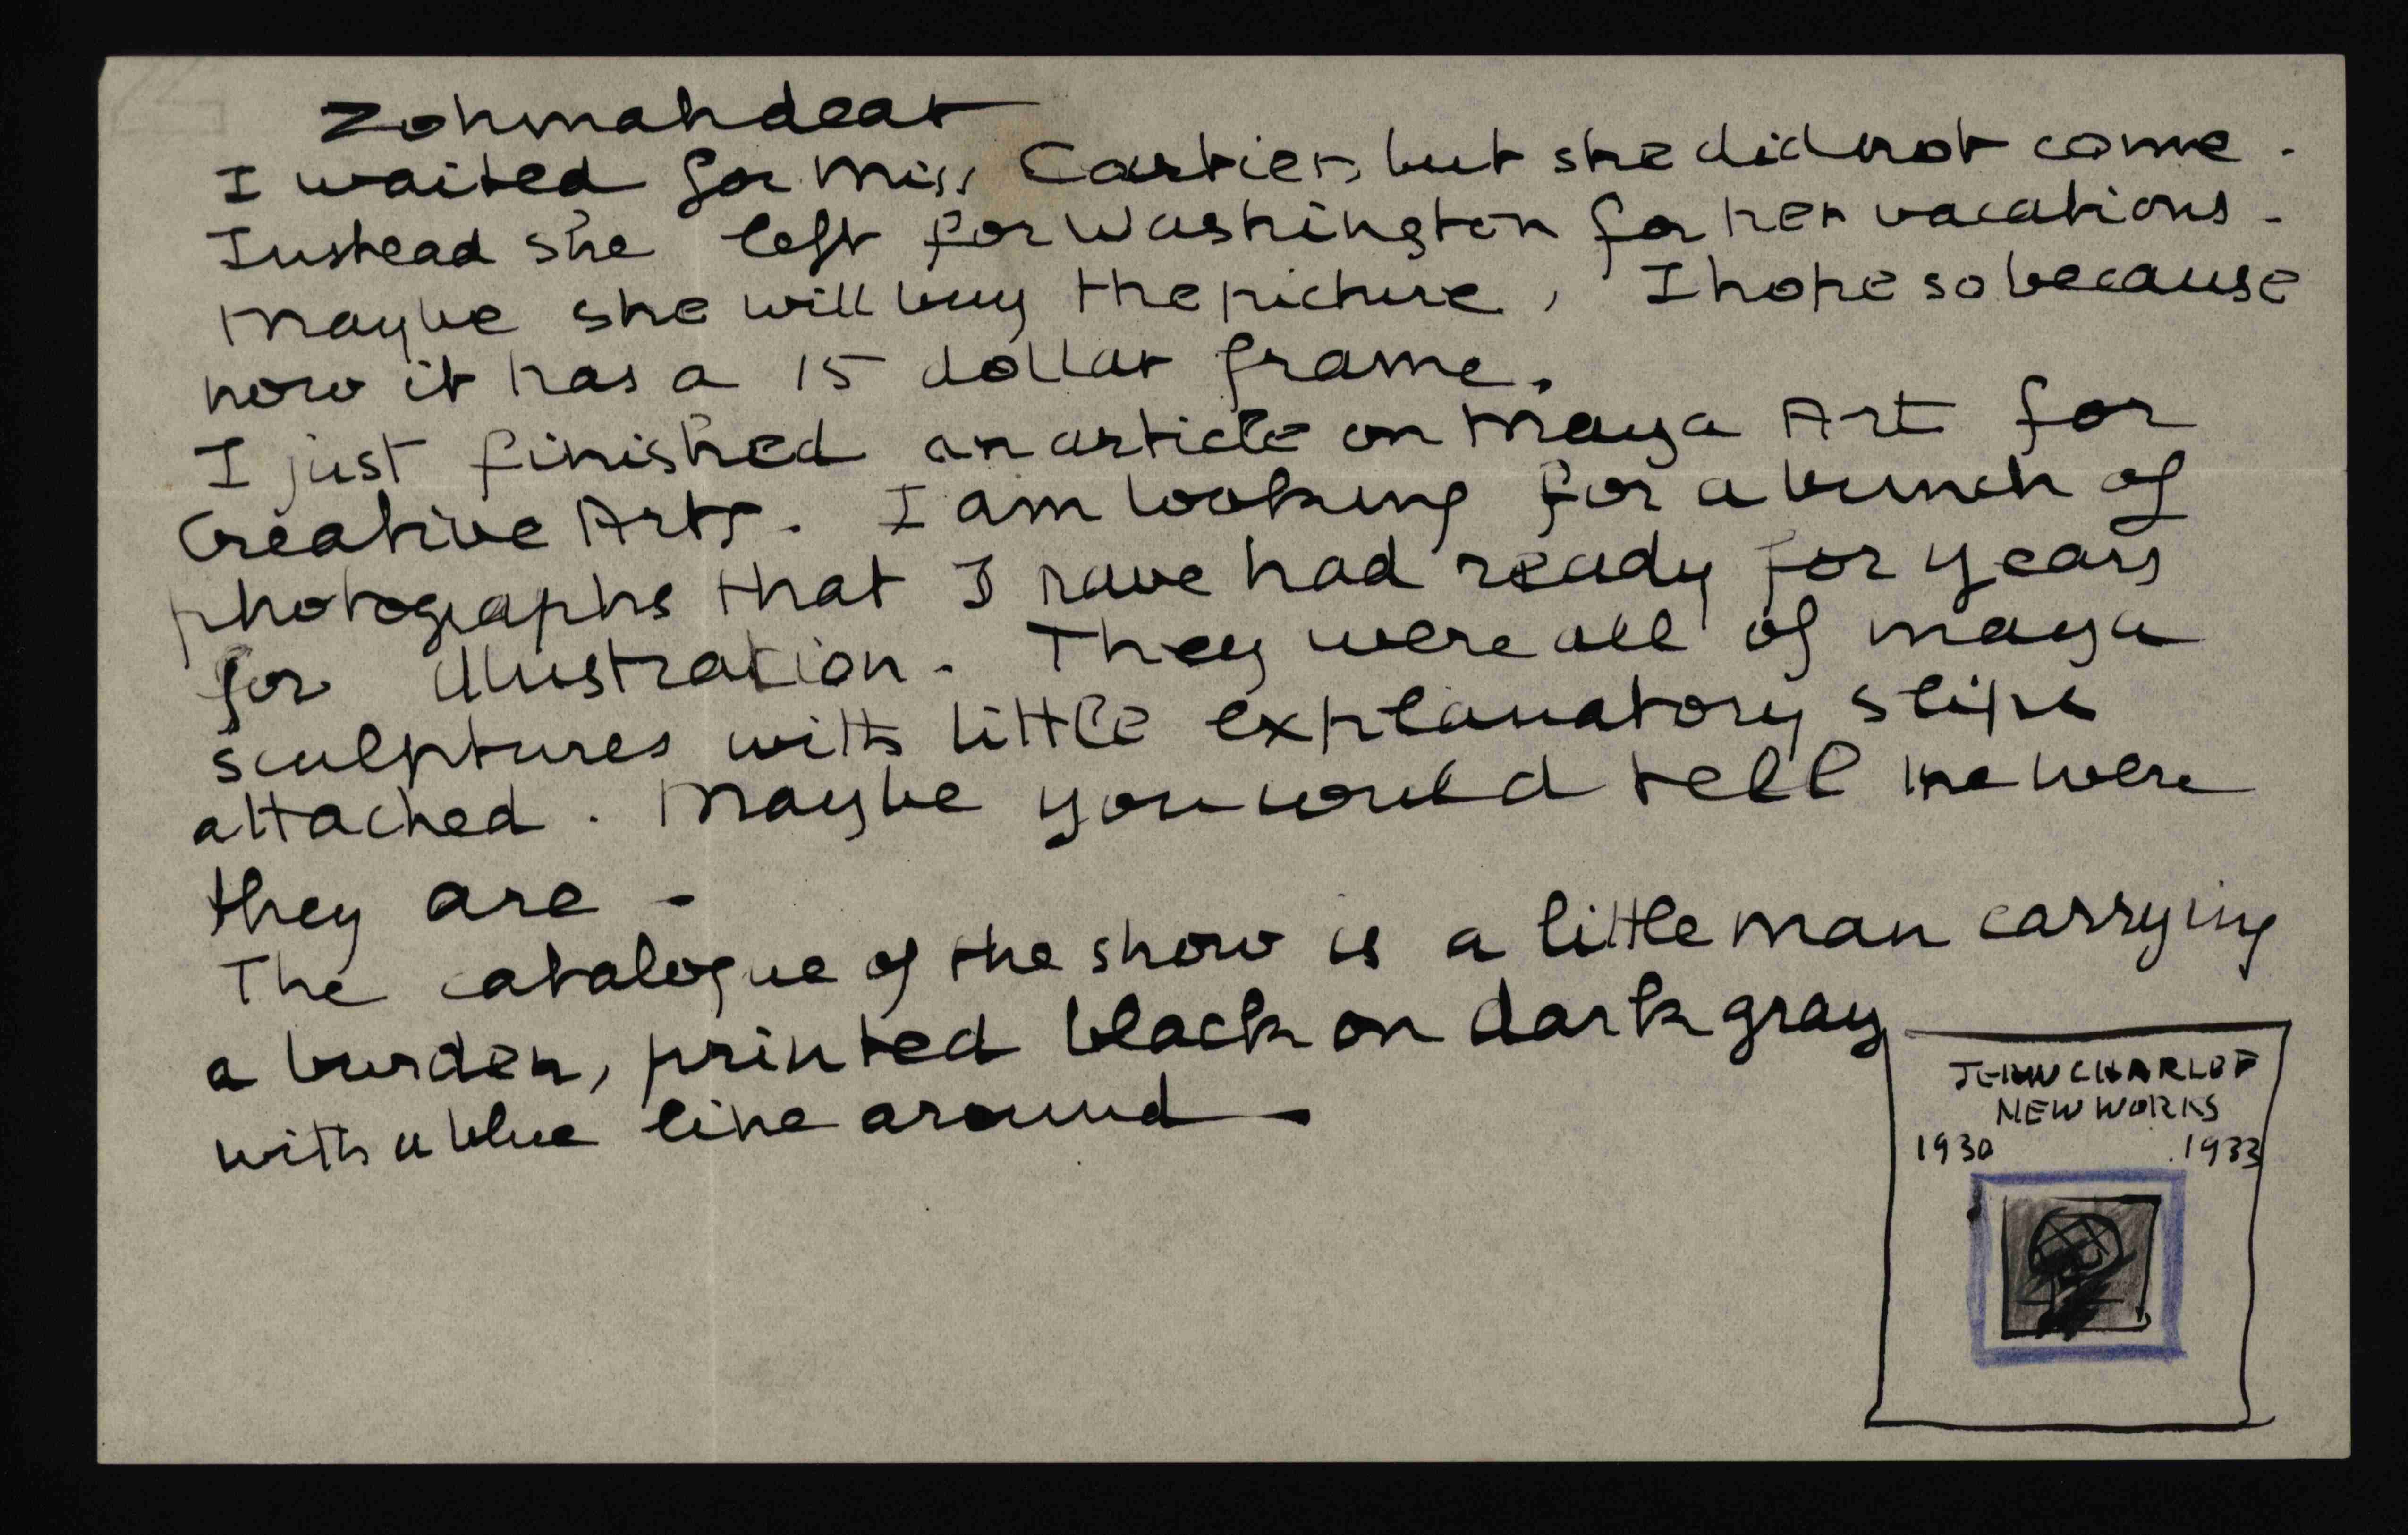 Zohmah dear
I waited for Miss Cartier, but she did not come.
Instead she left for Washington for her vacations.
Maybe she will buy the picture, I hope so because
now it has a 15 dollar frame.
I just finished an article on Maya Art for
Creative Arts. I am looking for a bunch of
photographs that I have had ready for years
for illustration. They were all of maya
sculptures with little explanatory slips
attached. Maybe you would tell me were
they are -
The catalogue of the show is a little man carrying
a burden, printed black on dark gray
with a blue line around -
JEAN CHARLOT
NEW WORKS
1930 1933